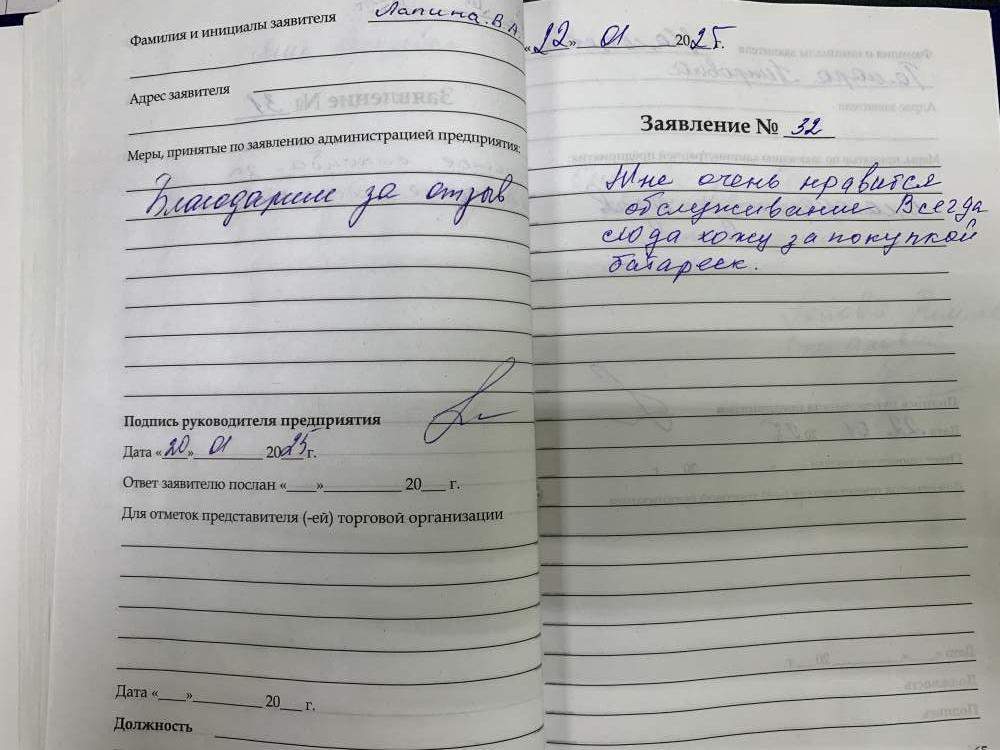 Фамилия и инициалы заявителя Лапина В.А.
Адрес заявителя
Меры, принятые по заявлению администрацией предприятия:
Благодарим за отзыв
Подпись руководителя предприятия
Дата «20» 01 2025 г.
Ответ заявителю послан «___»__________ 20___ г.
Для отметок представителя (-ей) торговой организации
Дата «___»__________ 20___ г.
Должность
«22» 01 2025 г.
Заявление № 32
Мне очень нравится
обслуживание Всегда
сюда хожу за покупкой
батареек.